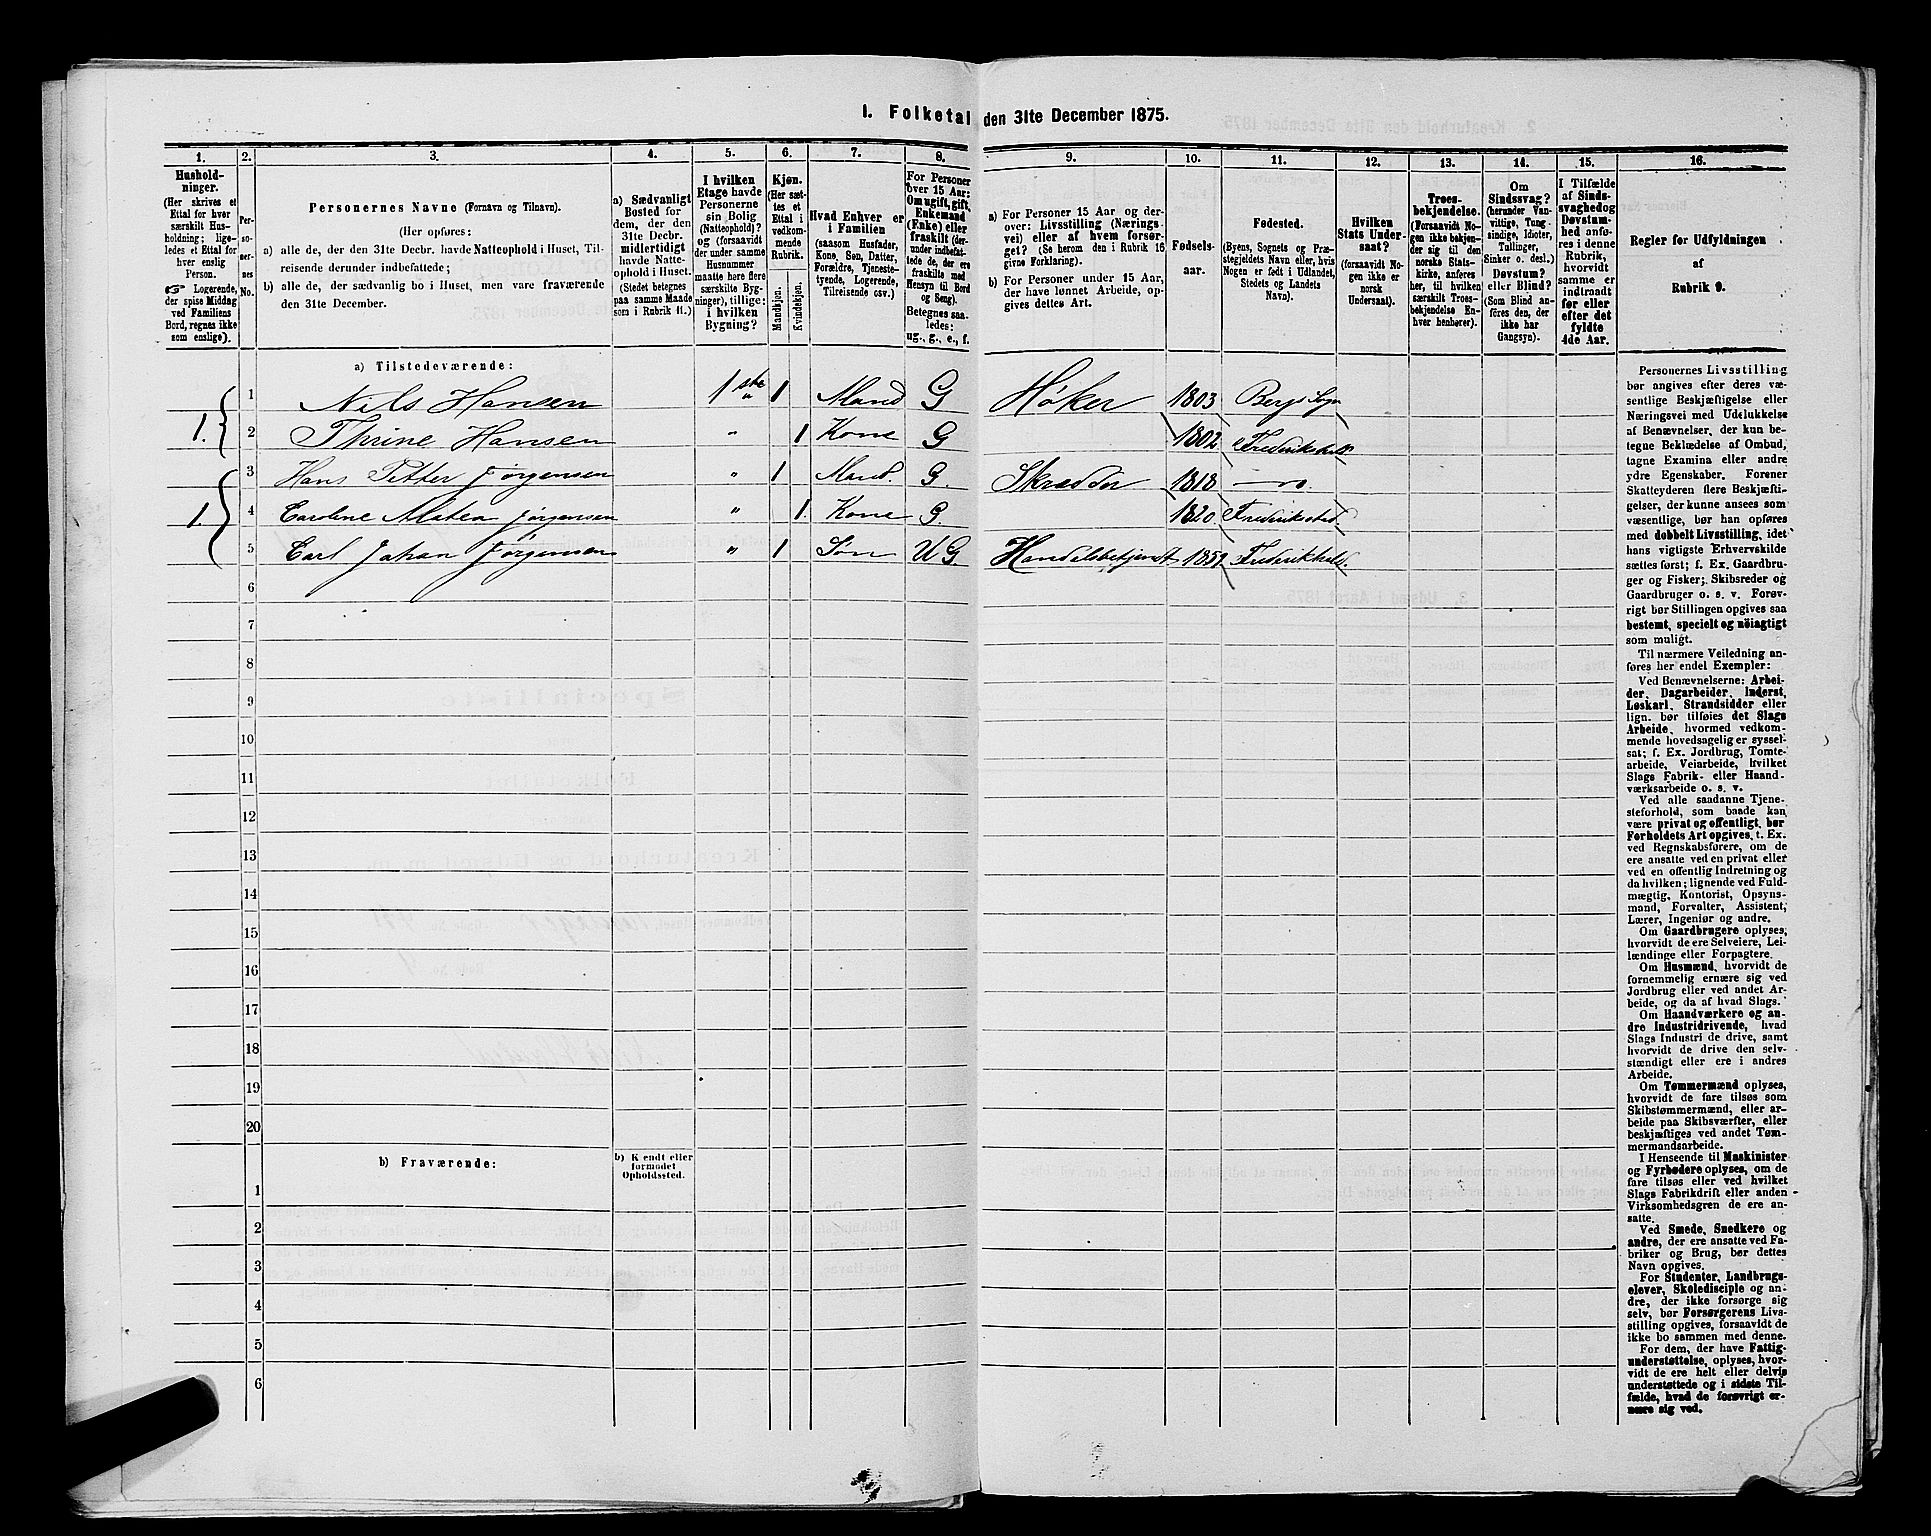 1. Folketal den 31te December 1875.
1.
2.
3.
4.
5.
6.
7.
8.
9.
10.
11.
12.
13.
14.
15.
16.
Hushold-
ninger.
(Her skrives et
Ettal for hver
særskilt Hus-
holdning; lige-
ledes et Ettal for
hver enslig
Person.
☞ Logerende,
der spise Middag
ved Familiens
Bord, regnes ikke
som enslige).
Per-
so-
ner-
nes
No.
Personernes Navne (Fornavn og Tilnavn).
(Her opføres:
a) alle de, der den 31te Decbr. havde Natteophold i Huset, Til-
reisende derunder indbefattede;
b) alle de, der sædvanlig bo i Huset, men vare fraværende
den 31te December.
a) Sædvanligt
Bosted for
dem, der den
31te Decbr.
midlertidigt
havde Natte-
ophold i Huset.
(Stedet betegnes
paa samme Maade
som i Rubrik 11.)
I hvilken
Etage havde
Personerne
sin Bolig
(Natteophold)?
og (forsaavidt
der under samme
Husnummer
maatte høre flere
særskilte Byg-
ninger), tillige:
i hvilken
Bygning?
Kjøn.
(Her sæt-
tes et
Ettal i
vedkom-
mende
Rubrik.
Mandkjøn.
Kvindekjøn.
Hvad Enhver er
i Familien
(saasom Husfader,
Kone, Søn, Datter,
Forældre, Tjeneste-
tyende, Logerende,
Tilreisende osv.)
For Personer
over 15 Aar:
Om ugift, gift,
Enkemand
(Enke) eller
fraskilt (der-
under indbefat-
tede de, der ere
fraskilte med
Hensyn til Bord
og Seng).
Betegnes saa-
ledes:
ug., g., e., f.
a) For Personer 15 Aar og der-
over: Livsstilling (Nærings-
vei) eller af hvem forsør-
get? (Se herom den i Rubrik 16
givne Forklaring).
b) For Personer under 15 Aar,
der have lønnet Arbeide, op-
gives dettes Art.
Fødsels-
aar.
Fødested.
(Byens, Sognets og Præ-
stegjeldets Navn eller, hvis
Nogen er født i Udlandet,
Stedets og Landets
Navn).
Hvilken
Stats Under-
saat?
(forsaavidt No-
gen ikke er
norsk
Undersaat).
Troes-
bekjendelse.
(Forsaavidt No-
gen ikke bekjen-
der sig til den
norske Stats-
kirke, anføres
her, til hvilken
særskilt Troes-
bekjendelse En-
hver henhører).
Om
Sindssvag?
(herunder Van-
vittige, Tung-
sindige, Idioter,
Tullinger,
Sinker o. desl.)
Døvstum?
eller Blind?
(Som Blind an-
føres den, der
ikke har
Gangsyn).
I Tilfælde
af Sinds-
svaghed og
Døvstum-
hed anfø-
res i denne
Rubrik,
hvorvidt
samme er
indtraadt
før eller
efter det
fyldte
4de Aar.
Regler for Udfyldningen
af
Rubrik 9.
a) Tilstedeværende:
1. 1 Nils Hansen 1 ste " 1 Mand G Høker 1803 Bergs Sogn
2 Thrine Hansen " 1 Kone G 1802 Frederikshald
1. 3 Hans Petter Jørgensen " 1 Mand. G. Skrædder 1818
4 Caroline Matea Jørgensen " 1. Kone G. 1820 Frederiksstad
5 Carl Johan Jørgensen " 1 Søn UG. Handelsbetjent Frederikhald.
6
7
8
9
10
11
12
13
14
15
16
17
18
19
20
b) Fraværende:
b) Kjendt eller
formodet
Opholdssted.
1
2
3
4
5
6
Personernes Livsstilling
bør angives efter deres væ-
sentlige Beskjæftigelse eller
Næringsvei med Udelukkelse
af Benævnelser, der kun be-
tegne Beklædelse af Ombud,
tagne Examina eller andre
ydre Egenskaber. Forener
Skatteyderen flere Beskjæfti-
gelser, der kunne ansees som
væsentlige, bør han opføres
med dobbelt Livsstilling, idet
hans vigtigste Erhvervskilde
sættes først; f. Ex. Gaardbru-
ger og Fisker; Skibsreder og
Gaardbruger o. s. v. Forøv-
rigt bør Stillingen opgives saa
bestemt, specielt og nøiagtigt
som muligt.
Til nærmere Veiledning an-
føres her endel Exempler:
Ved Benævnelserne: Arbei-
der, Dagarbeider, Inderst,
Løskarl, Strandsidder eller
lign. bør tilføies det Slags
Arbeide, hvormed vedkom-
mende hovedsagelig er syssel-
sat; f. Ex. Jordbrug, Tomte-
arbeide, Veiarbeide, hvilket
Slags Fabrik- eller Haand-
værksarbeide o. s. v.
Ved alle saadanne Tjene-
steforhold, som baade kan
være privat og offentligt, bør
Forholdets Art opgives, t. Ex.
ved Regnskabsførere, om de
ere ansatte ved en privat eller
ved en offentlig Indretning og
da hvilken; lignende ved Fuld-
mægtig, Kontorist, Opsyns-
mand, Forvalter, Assistent,
Lærer, Ingeniør og andre.
Om Gaardbrugere oplyses,
hvorvidt de ere Selveiere, Lei-
lændinge eller Forpagtere.
Om Husmænd, hvorvidt de
fornemmelig ernære sig ved
Jordbrug eller ved andet Ar-
beide, og da af hvad Slags.
Om Haandværkere og an-
dre Industridrivende, hvad
Slags Industri de drive, samt
hvorvidt de drive den selv-
stændigt eller ere i andres
Arbeide.
Om Tømmermænd oplyses,
hvorvidt de fare tilsøs som
Skibstømmermænd, eller ar-
beide paa Skibsværfter, eller
beskjæftiges ved andet Tøm-
mermandsarbeide.
I Henseende til Maskinister
og Fyrbødere oplyses, om de
fare tilsøs eller ved hvilket
Slags Fabrikdrift eller anden
Virksomhedsgren de ere an-
satte.
Ved Smede, Snedkere og
andre, der ere ansatte ved Fa-
briker og Brug, bør dettes
Navn opgives.
For Studenter, Landbrugs-
elever, Skoledisciple og an-
dre, der ikke forsørge sig
selv, bør Forsørgerens Livs-
stilling opgives, forsaavidt de
ikke bo sammen med denne.
For dem, der have Fattig-
understøttelse, oplyses, hvor-
vidt de ere helt eller delvis
understøttede og i sidste Til-
fælde, hvad de forøvrigt er-
nære sig ved.